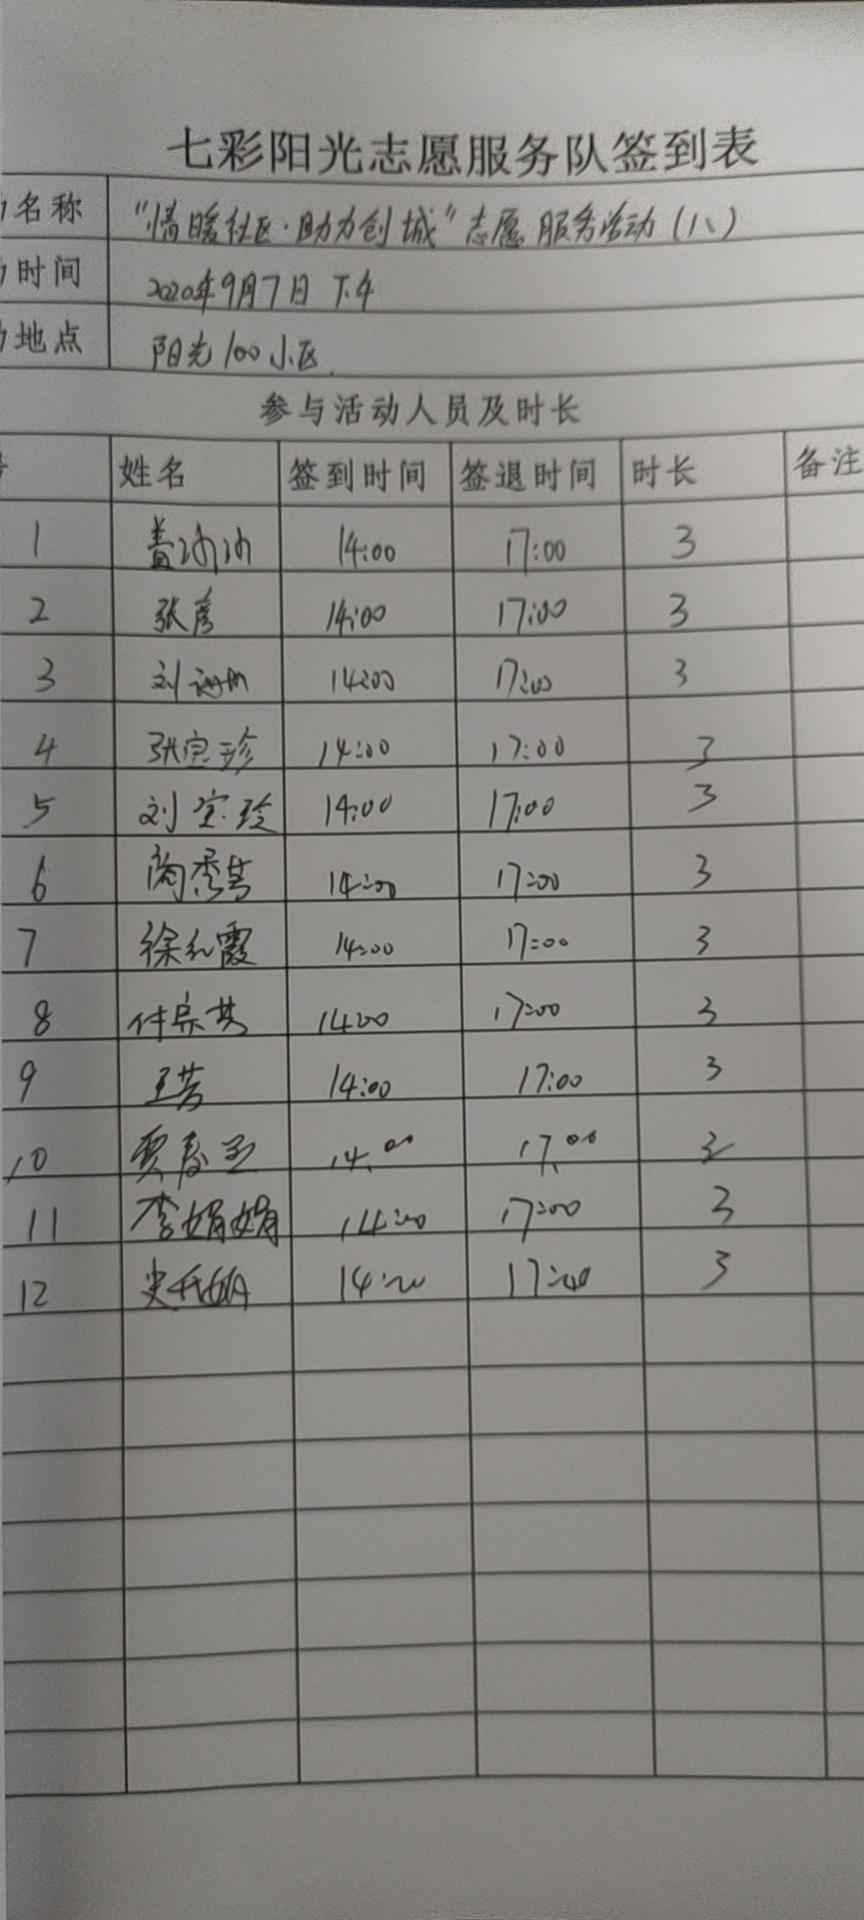 七彩阳光志愿服务队签到表
名称 "情暖社区·助力创城"志愿服务活动(八)
时间 2020年9月7日 下午
地点 阳光100小区
参与活动人员及时长
姓名 签到时间 签退时间 时长 备注
1 盖 14:00 17:00 3
2 张彦 14:00 17:00 3
3 刘 14:00 17:00 3
4 张宝珍 14:00 17:00 3
5 刘宝玲 14:00 17:00 3
6 陶秀芳 14:00 17:00 3
7 徐红霞 14:00 17:00 3
8 付宗英 14:00 17:00 3
9 王芳 14:00 17:00 3
10 贾春 14:00 17:00 3
11 李娟娟 14:00 17:00 3
12 史 14:00 17:00 3